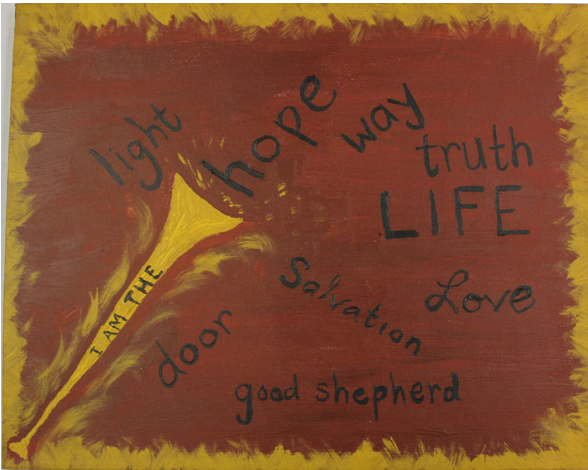 light
hope
way
truth
LIFE
I AM THE
Salvation
Love
door
good shepherd